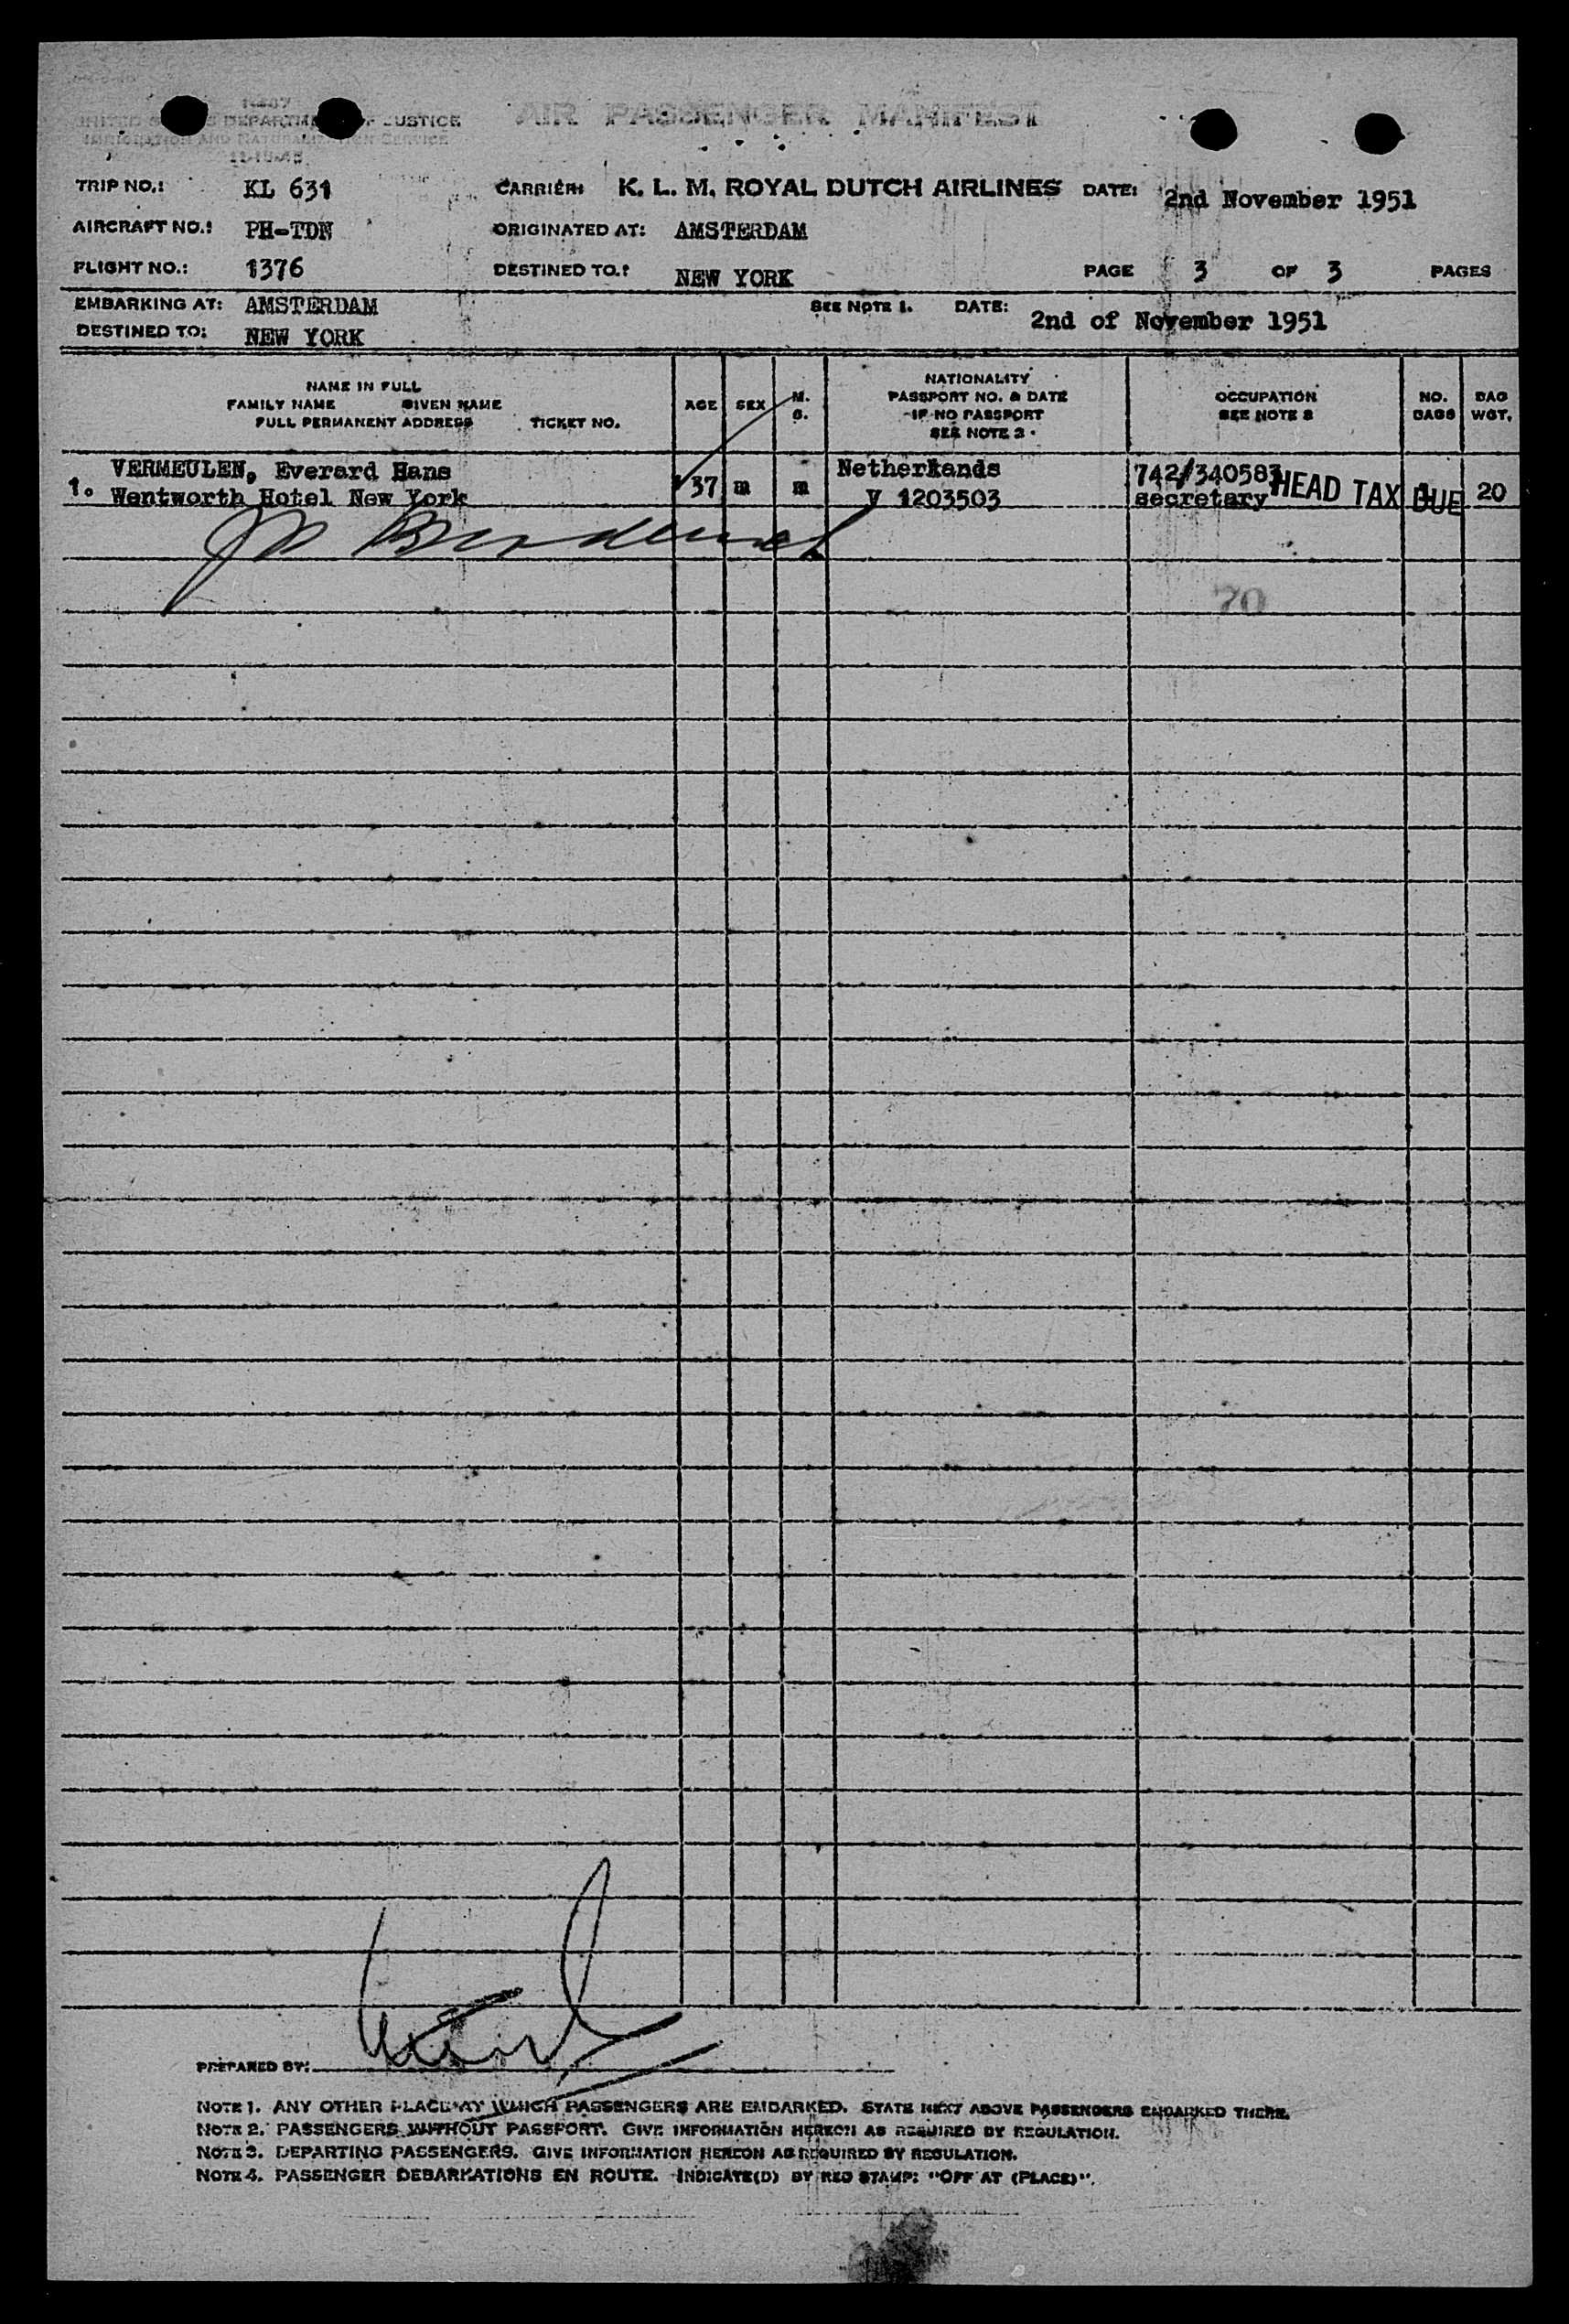 I-407
UNITED STATES DEPARTMENT OF JUSTICE
IMMIGRATION AND NATURALIZATION SERVICE
AIR PASSENGER MANIFEST
TRIP NO.: KL 631 CARRIER: K. L. M. ROYAL DUTCH AIRLINES DATE: 2nd November 1951
AIRCRAFT NO.: PH-TDN ORIGINATED AT: AMSTERDAM
FLIGHT NO.: 1376 DESTINED TO: NEW YORK PAGE 3 OF 3 PAGES
EMBARKING AT: AMSTERDAM SEE NOTE 1. DATE: 2nd of November 1951
DESTINED TO: NEW YORK
NAME IN FULL
FAMILY NAME GIVEN NAME
FULL PERMANENT ADDRESS TICKET NO.
AGE
SEX
M.
S.
NATIONALITY
PASSPORT NO. & DATE
IF NO PASSPORT
SEE NOTE 2
OCCUPATION
SEE NOTE 2
NO.
BAGS
BAG
WGT.
1. VERMEULEN, Everard Hans
Wentworth Hotel New York
37 m m
Netherkands
V 1203503
742/340583
secretary
HEAD TAX DUE
20
70
PREPARED BY:
NOTE 1. ANY OTHER PLACE AT WHICH PASSENGERS ARE EMBARKED. STATE NEXT ABOVE PASSENGERS EMBARKED THERE.
NOTE 2. PASSENGERS WITHOUT PASSPORT. GIVE INFORMATION HEREON AS REQUIRED BY REGULATION.
NOTE 3. DEPARTING PASSENGERS. GIVE INFORMATION HEREON AS REQUIRED BY REGULATION.
NOTE 4. PASSENGER DEBARKATIONS EN ROUTE. INDICATE(D) BY RED STAMP: "OFF AT (PLACE)".